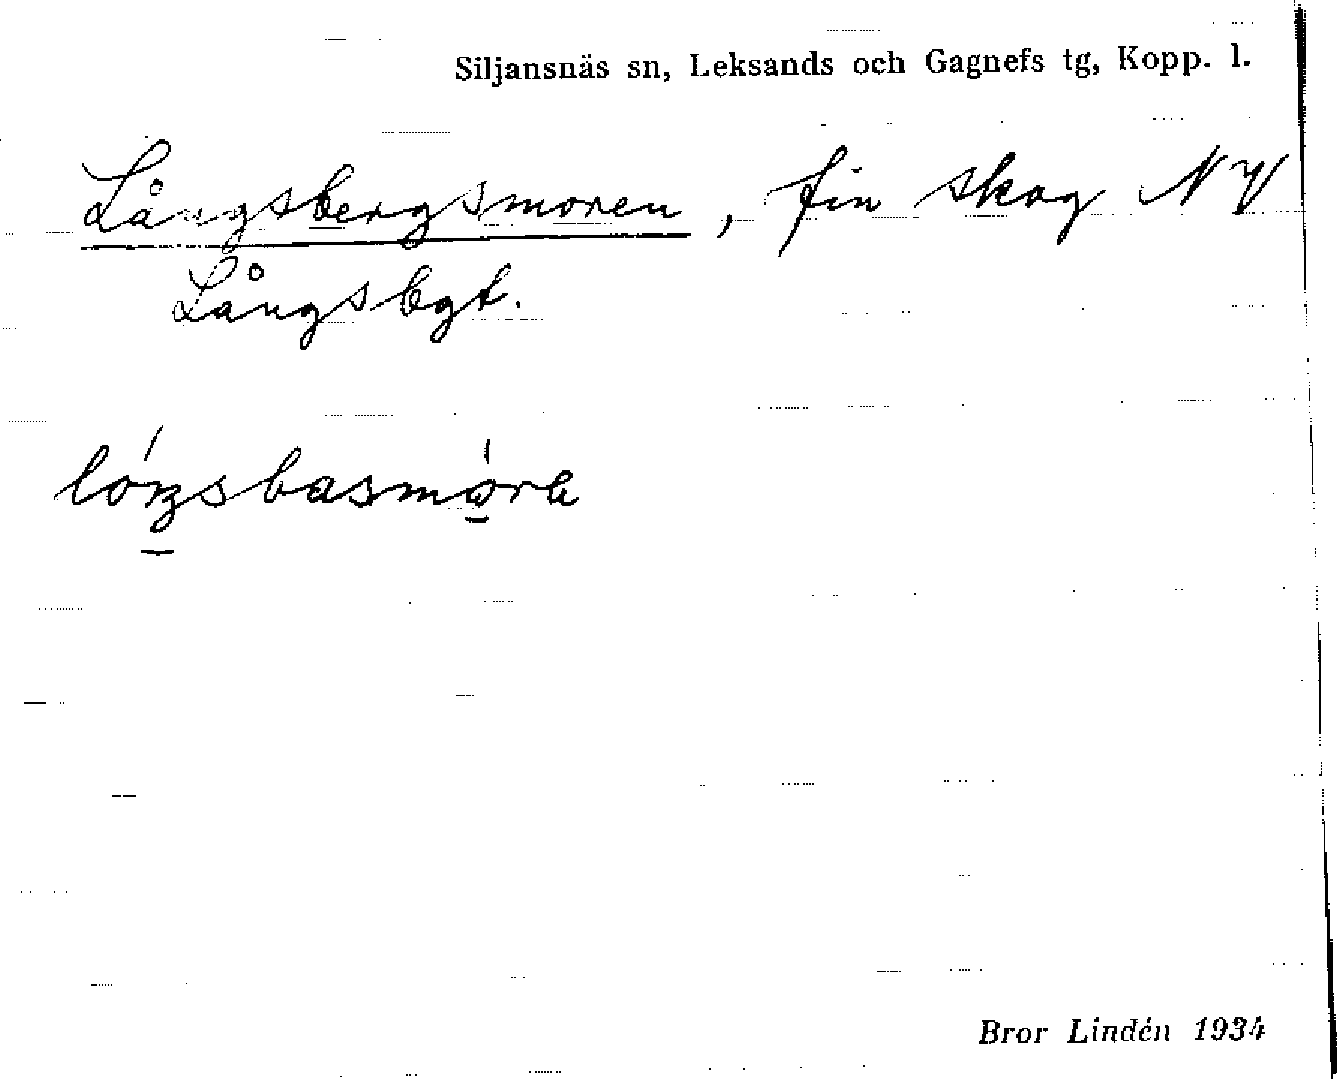 Siljansnäs sn, Leksands och Gagnefs tg, Kopp. l.
Långsbergsmoren, fin skog NV
Långsbgt.
Bror Lindén 1934